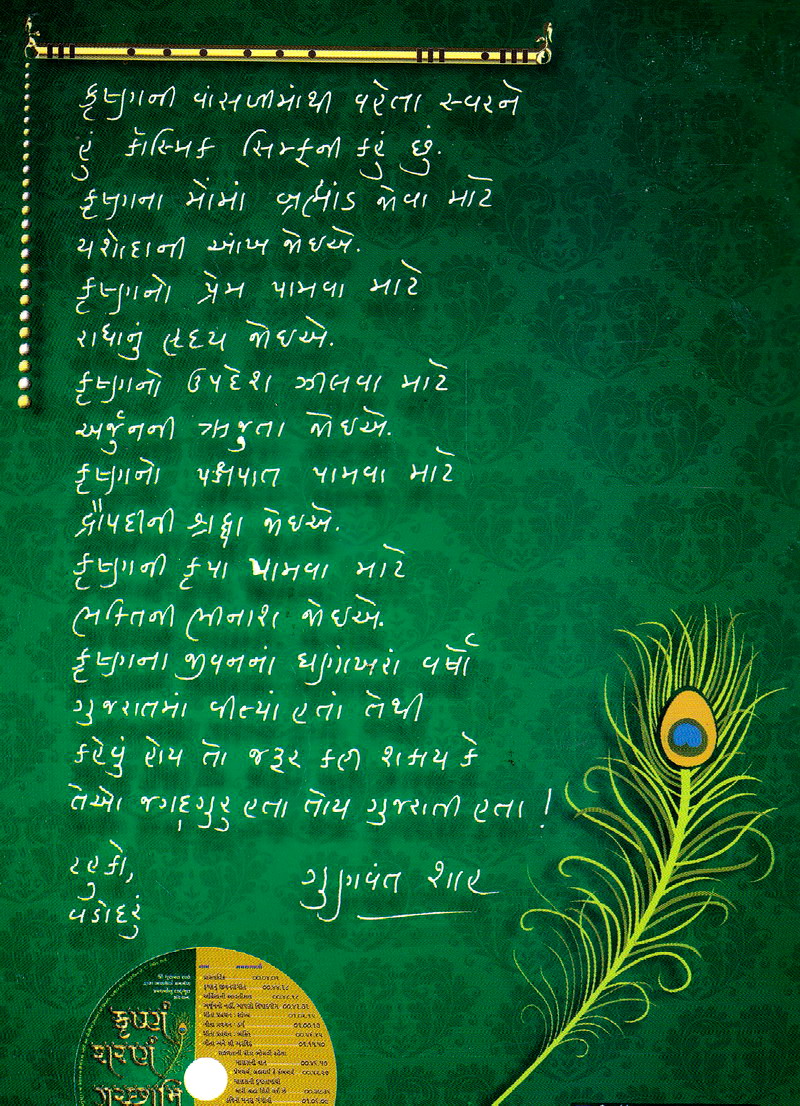 કૃષ્ણની વાંસળીમાંથી વહેતા સ્વરને
હું કોસ્મિક સિમ્ફની કહું છું.
કૃષ્ણના મોંમાં બ્રહ્માંડ જોવા માટે
યશોદાની આંખ જોઇએ.
કૃષ્ણનો પ્રેમ પામવા માટે
રાધાનું હૃદય જોઇએ.
કૃષ્ણનો ઉપદેશ ઝીલવા માટે
અર્જુનની ઋજુતા જોઇએ.
કૃષ્ણનો પક્ષપાત પામવા માટે
દ્રૌપદીની શ્રદ્ધા જોઇએ.
કૃષ્ણની કૃપા પામવા માટે
ભક્તિની ભીનાશ જોઇએ.
કૃષ્ણના જીવનનાં ઘણાંખરાં વર્ષો
ગુજરાતમાં વીત્યાં હતાં તેથી
કહેવું હોય તો જરૂર કહી શકાય કે
તેઓ જગદ્ગુરુ હતા તોય ગુજરાતી હતા !
ટહુકો,
વડોદરું
ગુણવંત શાહ
કૃષ્ણં
શરણં
ગચ્છામિ